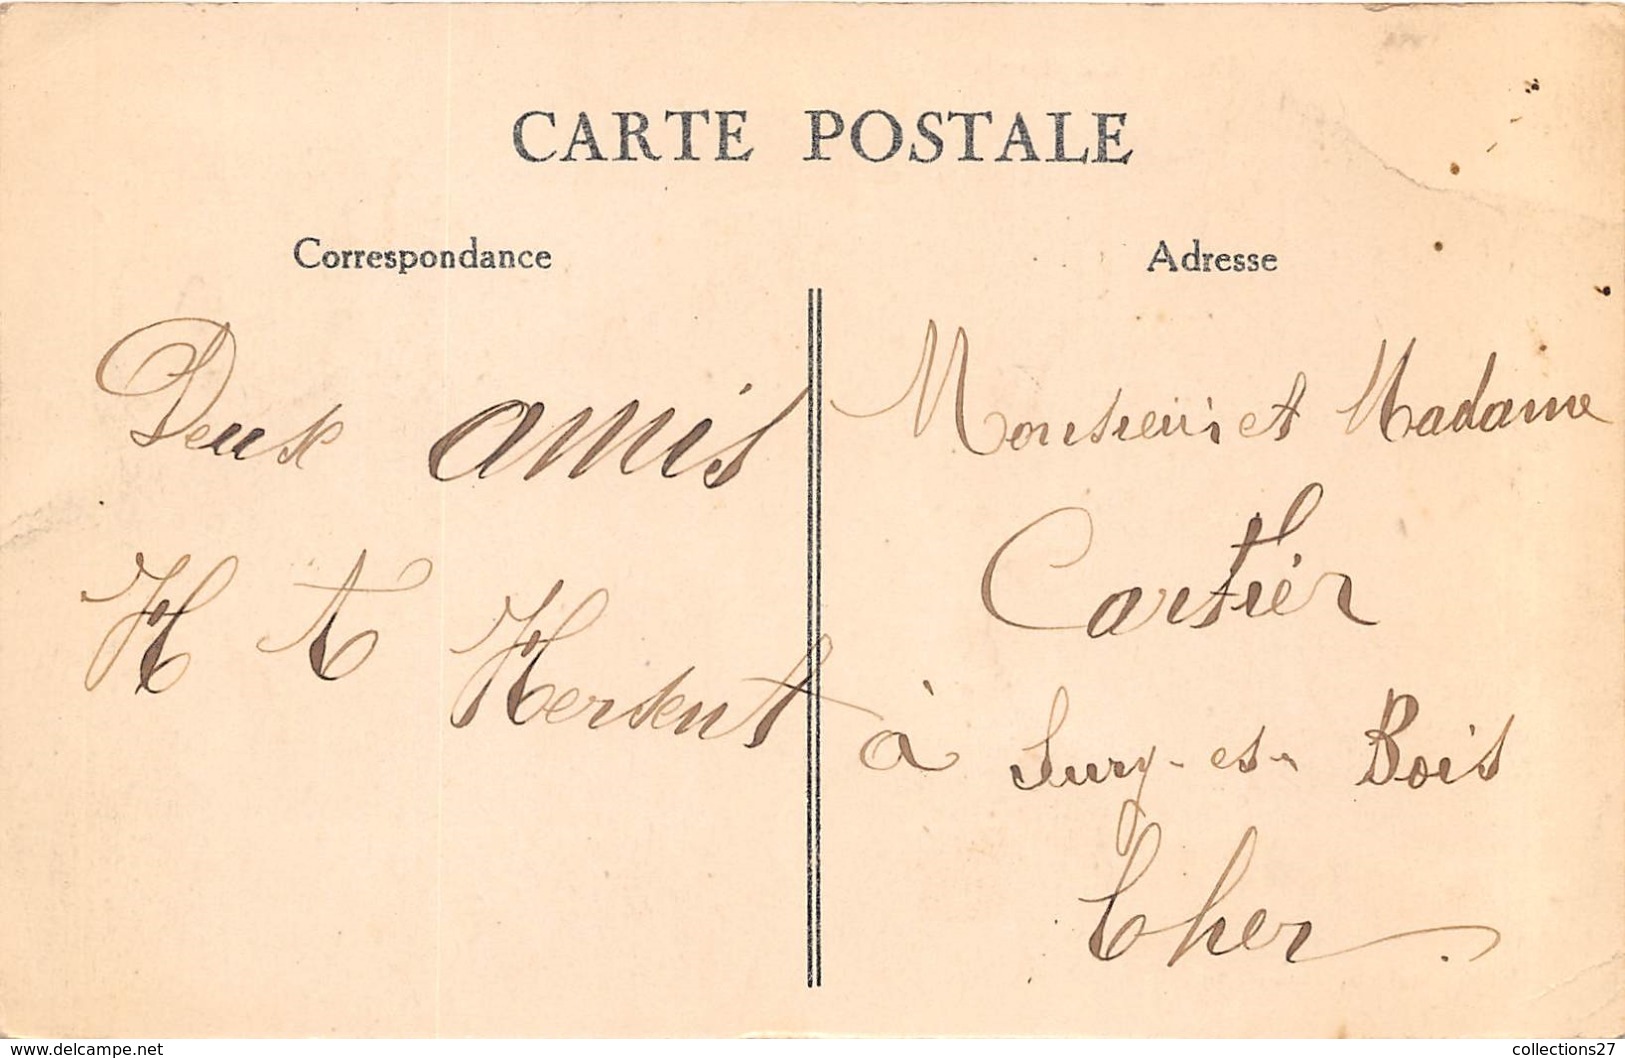 CARTE POSTALE
Correspondance
Deux amis
H A Hersent
Adresse
Monsieur et Madame
Cartier
à Sury-es-Bois
Cher
www.delcampe.net
collections27